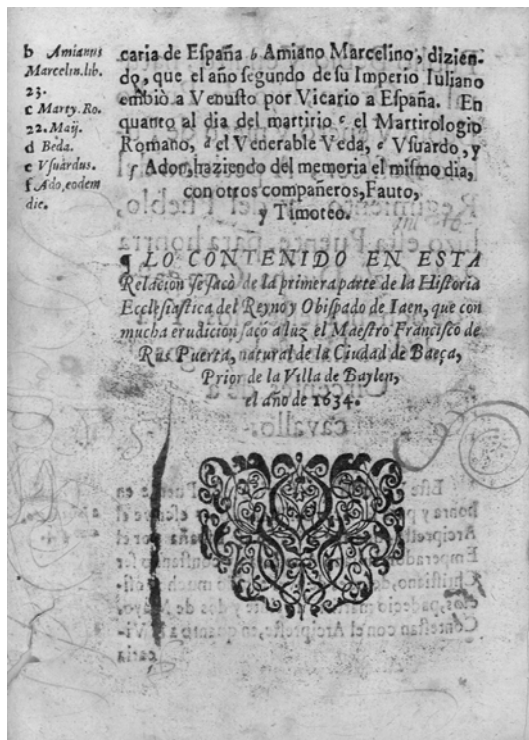 b Amianus
Marcelin.lib.
23.
c Marty. Ro.
22. Maij.
d Beda.
e Vſuardus.
f Ado, eodem
die.
caria de Eſpaña b Amiano Marcelino, dizien-
do, que el año ſegundo de ſu Imperio Iuliano
embiò a Venuſto por Vicario a Eſpaña. En
quanto al dia del martirio c el Martirologio
Romano, d el Venerable Veda, e Vſuardo, y
f Adon, haziendo del memoria el miſmo dia,
con otros compañeros, Fauto,
y Timoteo.
¶ LO CONTENIDO EN ESTA
Relacion ſe ſacò de la primera parte de la Hiſtoria
Eccleſiaſtica del Reyno y Obiſpado de Iaen, que con
mucha erudicion ſaco a luz el Maeſtro Franciſco de
Rus Puerta, natural de la Ciudad de Baeça,
Prior de la Villa de Baylen,
el año de 1634.